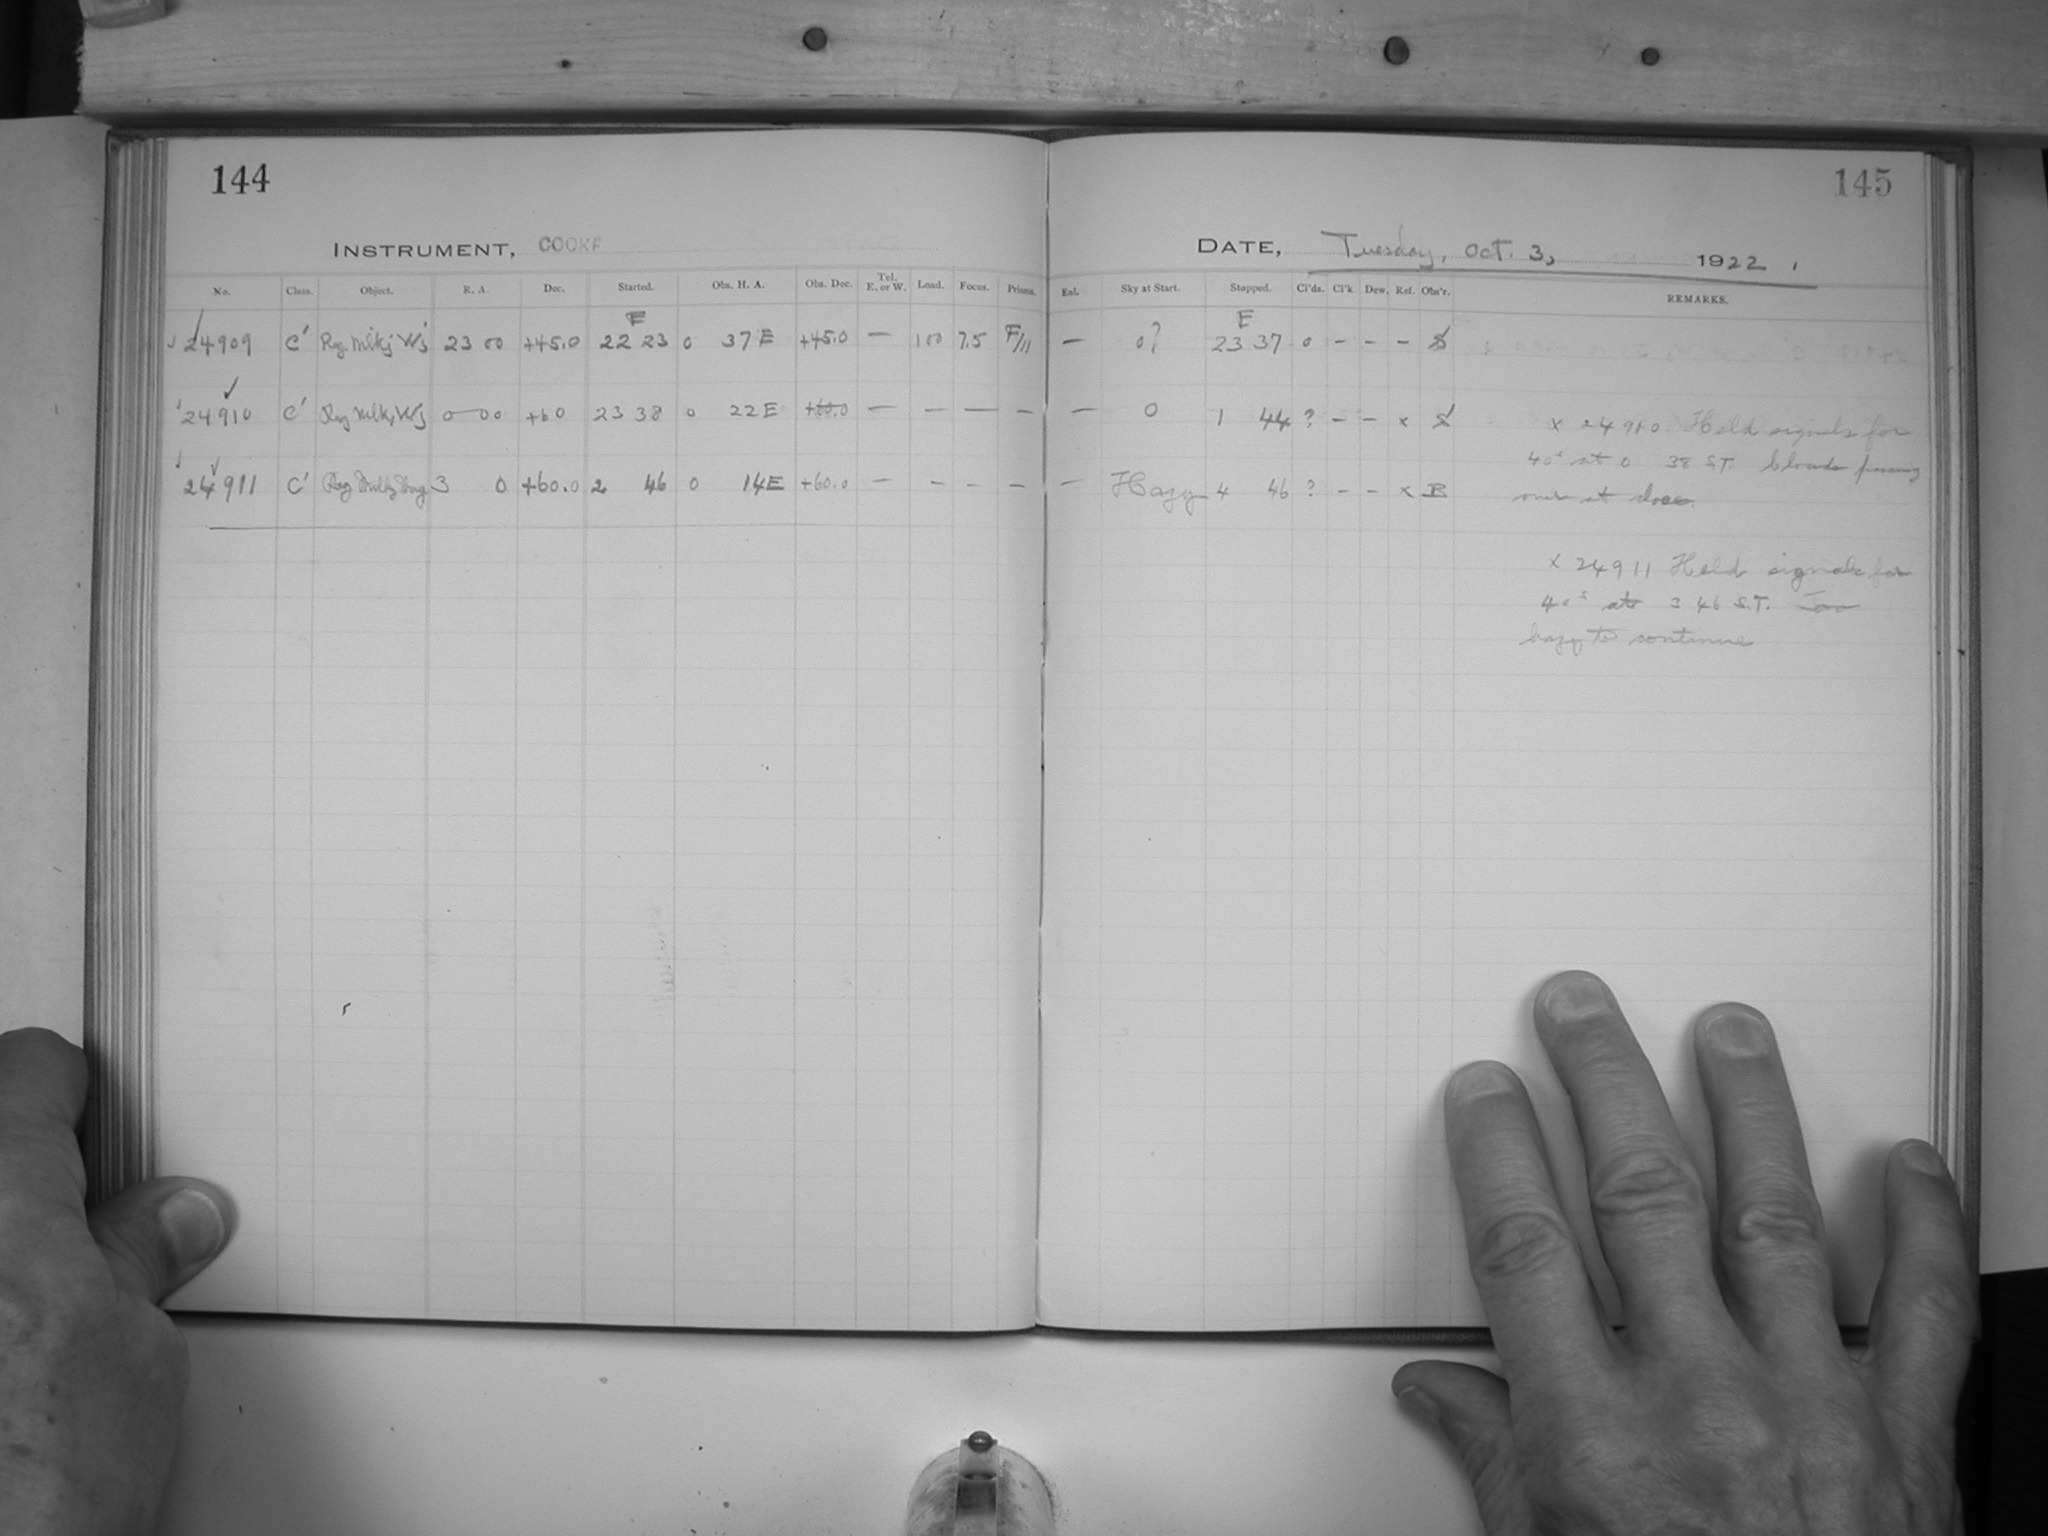 144
145
INSTRUMENT, COOKE
DATE, Tuesday, Oct. 3, 1922.
No. Class. Object. R. A. Dec. Started. Obs. H. A. Obs. Dec. Tel. E. or W. Load. Focus. Prisms. Eal. Sky at Start. Stopped. Cl'ds. Cl'k. Dew. Ref. Obs'r. REMARKS.
E E
✓ 24909 C' Reg Milky Wy 23 00 +45.0 22 23 0 37 E +45.0 — 100 7.5 F/11 — 0? 23 37 0 - - - S
✓ 24910 C' Reg Milky Wy 0 00 +60 23 38 0 22 E +60.0 — — — — — 0 1 44 ? - - x S
✓ 24911 C' Reg Milky Way 3 0 +60.0 2 46 0 14 E +60.0 — - - - — Hazy 4 46 ? - - x B
x 24910 Held signals for
40s at 0 38 S.T. Clouds passing
over at close.
x 24911 Held signals for
40s at 3 46 S.T. Too
hazy to continue